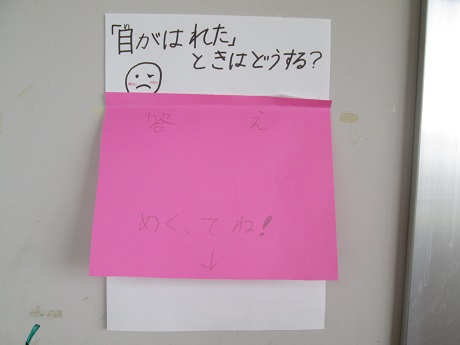 「目がはれた」
ときはどうする?
答 え
めくってね!
↓